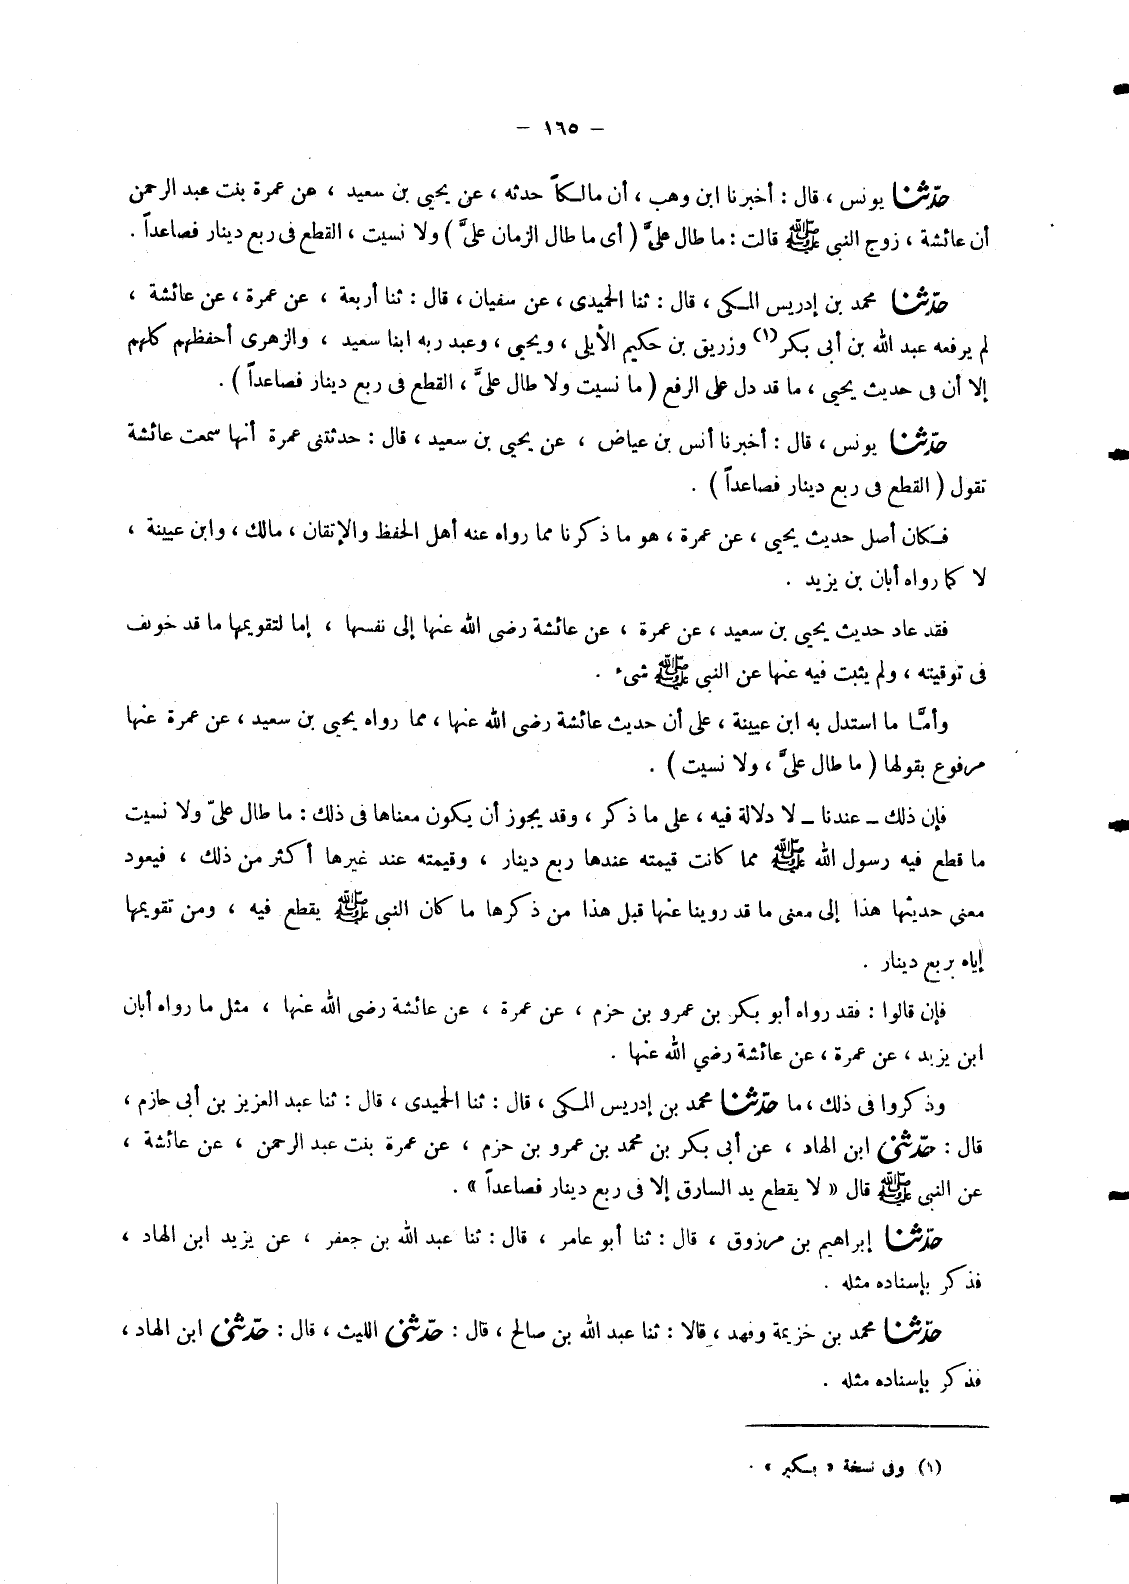 – ١٦٥ –
حدّثنا يونس ، قال : أخبرنا ابن وهب ، أن مالكاً حدثه ، عن يحيى بن سعيد ، عن عمرة بنت عبد الرحمن
أن عائشة ، زوج النبى ﷺ قالت : ما طال علىَّ ( أى ما طال الزمان علىَّ ) ولا نسيت ، القطع فى ربع دينار فصاعداً .
حدّثنا محمد بن إدريس المكى ، قال : ثنا الحميدى ، عن سفيان ، قال : ثنا أربعة ، عن عمرة ، عن عائشة ،
لم يرفعه عبد الله بن أبى بكر(١) وزريق بن حكيم الأيلى ، ويحيى ، وعبد ربه ابنا سعيد ، والزهرى أحفظهم كلهم
إلا أن فى حديث يحيى ، ما قد دل على الرفع ( ما نسيت ولا طال علىَّ ، القطع فى ربع دينار فصاعداً ) .
حدّثنا يونس ، قال : أخبرنا أنس بن عياض ، عن يحيى بن سعيد ، قال : حدثتنى عمرة أنها سمعت عائشة
تقول ( القطع فى ربع دينار فصاعداً ) .
فكان أصل حديث يحيى ، عن عمرة ، هو ما ذكرنا مما رواه عنه أهل الحفظ والإتقان ، مالك ، وابن عيينة ،
لا كما رواه أبان بن يزيد .
فقد عاد حديث يحيى بن سعيد ، عن عمرة ، عن عائشة رضى الله عنها إلى نفسها ، إما لتقويمها ما قد خولف
فى توقيته ، ولم يثبت فيه عنها عن النبى ﷺ شىء .
وأمَّا ما استدل به ابن عيينة ، على أن حديث عائشة رضى الله عنها ، مما رواه يحيى بن سعيد ، عن عمرة عنها
مرفوع بقولها ( ما طال علىَّ ، ولا نسيت ) .
فإن ذلك ــ عندنا ــ لا دلالة فيه ، على ما ذكر ، وقد يجوز أن يكون معناها فى ذلك : ما طال علىّ ولا نسيت
ما قطع فيه رسول الله ﷺ مما كانت قيمته عندها ربع دينار ، وقيمته عند غيرها أكثر من ذلك ، فيعود
معنى حديثها هذا إلى معنى ما قد روينا عنها قبل هذا من ذكرها ما كان النبى ﷺ يقطع فيه ، ومن تقويمها
إياه بربع دينار .
فإن قالوا : فقد رواه أبو بكر بن عمرو بن حزم ، عن عمرة ، عن عائشة رضى الله عنها ، مثل ما رواه أبان
ابن يزيد ، عن عمرة ، عن عائشة رضي الله عنها .
وذكروا فى ذلك ، ما حدّثنا محمد بن إدريس المكى ، قال : ثنا الحميدى ، قال : ثنا عبد العزيز بن أبى حازم ،
قال : حدّثنى ابن الهاد ، عن أبى بكر بن محمد بن عمرو بن حزم ، عن عمرة بنت عبد الرحمن ، عن عائشة ،
عن النبى ﷺ قال « لا يقطع يد السارق إلا فى ربع دينار فصاعداً » .
حدّثنا إبراهيم بن مرزوق ، قال : ثنا أبو عامر ، قال : ثنا عبد الله بن جعفر ، عن يزيد ابن الهاد ،
فذكر بإسناده مثله .
حدّثنا محمد بن خزيمة وفهد ، قالا : ثنا عبد الله بن صالح ، قال : حدّثنى الليث ، قال : حدّثنى ابن الهاد ،
فذكر بإسناده مثله .
(١) وفى نسخة « بكير » .